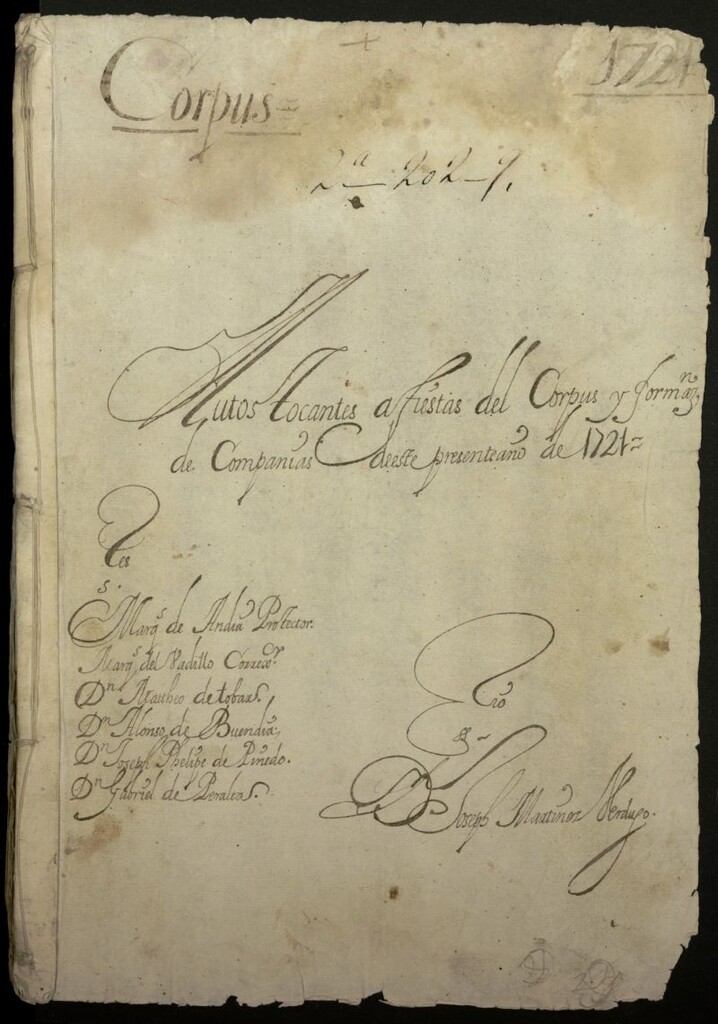 +
Corpus=
1721
2ª-202-7.
Autos tocantes a fiestas del Corpus y formaz.n
de Companias deeste presenteaño de 1721=
res
s.
Marq.s de Andia Protector.
Marq.s del Vadillo Correxor.
Dn Matheo de tobar.
Dn Alonso de Buendia,
Dn Joseph Phelipe de Pinedo.
Dn Gabriel de Peralta.
rio
D. Joseph Martinez Verdugo.